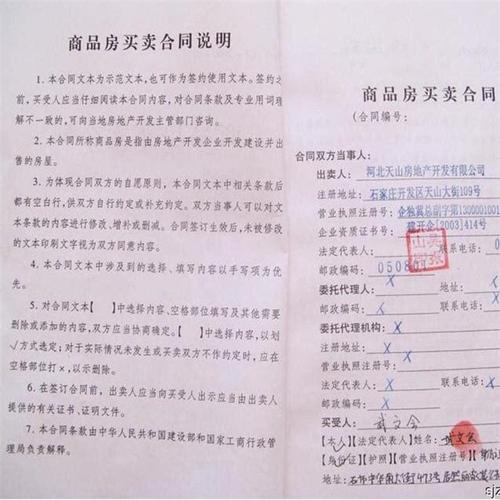 商品房买卖合同说明
1. 本合同文本为示范文本,也可作为签约使用文本。签约之
前,买受人应当仔细阅读本合同内容,对合同条款及专业用词理
解不一致的,可向当地房地产开发主管部门咨询。
2. 本合同所称商品房是指由房地产开发企业开发建设并出
售的房屋。
3. 为体现合同双方的自愿原则,本合同文本中相关条款后
都有空白行,供双方自行约定或补充约定。双方当事人可以对文
本条款的内容进行修改、增补或删减。合同签订生效后,未被修改
的文本印刷文字视为双方同意内容。
4. 本合同文本中涉及到的选择、填写内容以手写项为优
先。
5. 对合同文本【 】中选择内容、空格部位填写及其他需要
删除或添加的内容,双方应当协商确定。【 】中选择内容,以划
√方式选定;对于实际情况未发生或买卖双方不作约定时,应在
空格部位打×,以示删除。
6. 在签订合同前,出卖人应当向买受人出示应当由出卖人
提供的有关证书、证明文件。
7. 本合同条款由中华人民共和国建设部和国家工商行政管
理局负责解释。
商品房买卖合同
(合同编号:
合同双方当事人:
出卖人:河北天山房地产开发有限公司
注册地址:石家庄开发区天山大街109号
营业执照注册号:企独冀总副字第1300001001
企业资质证书号:冀开企[2003]414号
法定代表人: 联系电话:0
邮政编码:05080
委托代理人:× 地址:×
邮政编码:× 联系电话:
委托代理机构:×
注册地址:×
营业执照注册号:×
法定代表人:× 联系电话:×
邮政编码:×
买受人:武文会
【本人】【法定代表人】姓名:武文会
【身份证】【护照】【营业执照注册号】【
地址:石市中华南大街473号